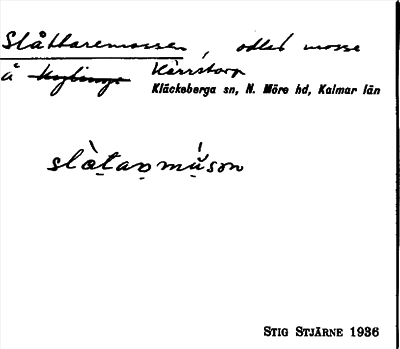 Slåttaremossen, odlad mosse
å Kärrstorp
Kläckeberga sn, N. Möre hd, Kalmar län
slàtaṛmúsǝn
STIG STJÄRNE 1936